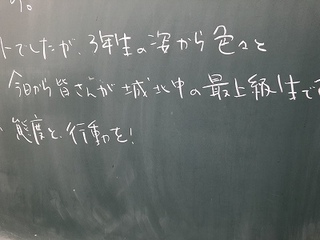 トでしたが、3年生の姿から色々と
今日から皆さんが城北中の最上級生で
態度と、行動を!